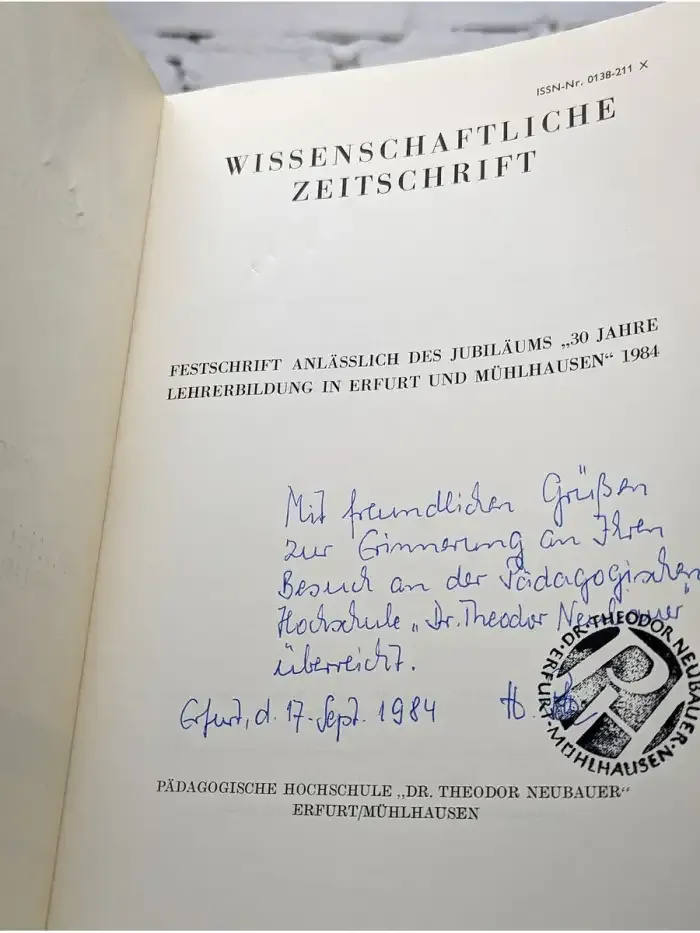 ISSN-Nr. 0138-211 X
WISSENSCHAFTLICHE
ZEITSCHRIFT
FESTSCHRIFT ANLÄSSLICH DES JUBILÄUMS „30 JAHRE
LEHRERBILDUNG IN ERFURT UND MÜHLHAUSEN“ 1984
Mit freundlichen Grüßen
zur Erinnerung an Ihren
Besuch an der Pädagogischen
Hochschule „Dr. Theodor Neubauer“
überreicht.
Erfurt, d. 17. Sept. 1984 H.
DR. THEODOR NEUBAUER · ERFURT · MÜHLHAUSEN ·
PH
PÄDAGOGISCHE HOCHSCHULE „DR. THEODOR NEUBAUER“
ERFURT/MÜHLHAUSEN